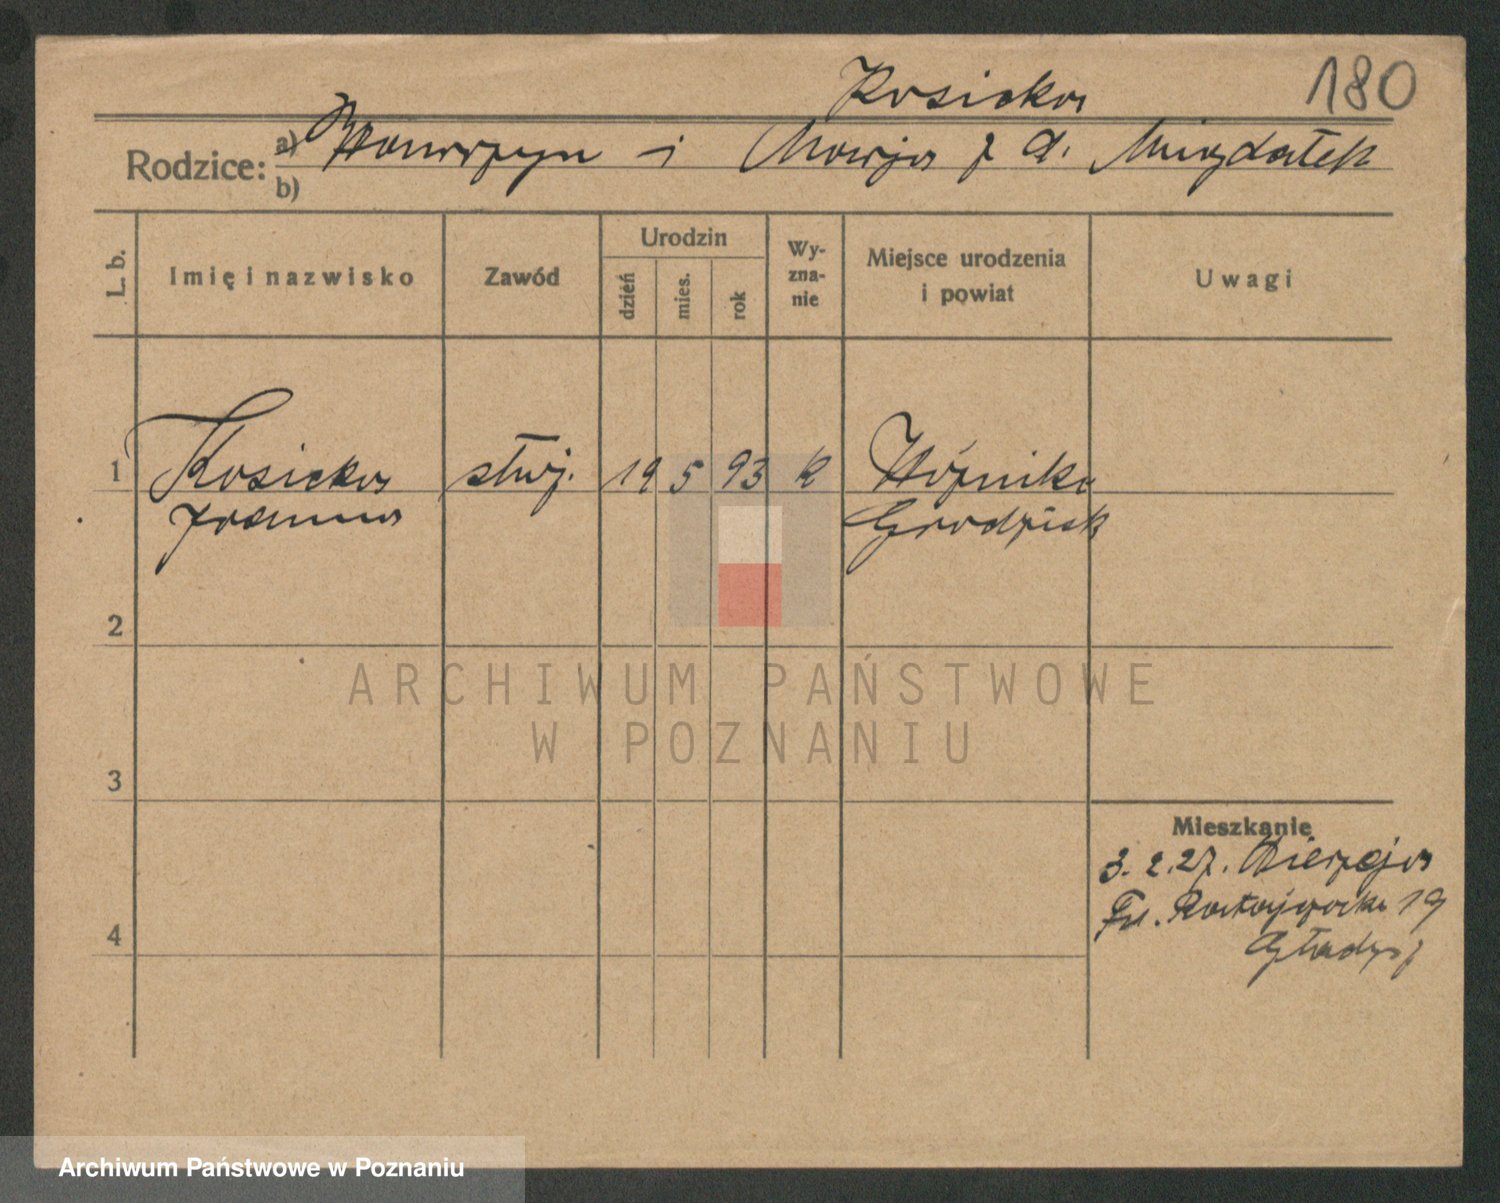 180
Kosicka
Rodzice: a) Wawrzyn i Marja z d. Migdałek
b)
L. b.
Imię i nazwisko
Zawód
Urodzin
dzień
mies.
rok
Wy-
zna-
nie
Miejsce urodzenia
i powiat
Uwagi
1 Kosicka służ. 19 5 93 k Woźniki
Joanna Grodzisk
2
3
4
Mieszkanie
3. 2. 27.
19
ARCHIWUM PAŃSTWOWE
W POZNANIU
Archiwum Państwowe w Poznaniu